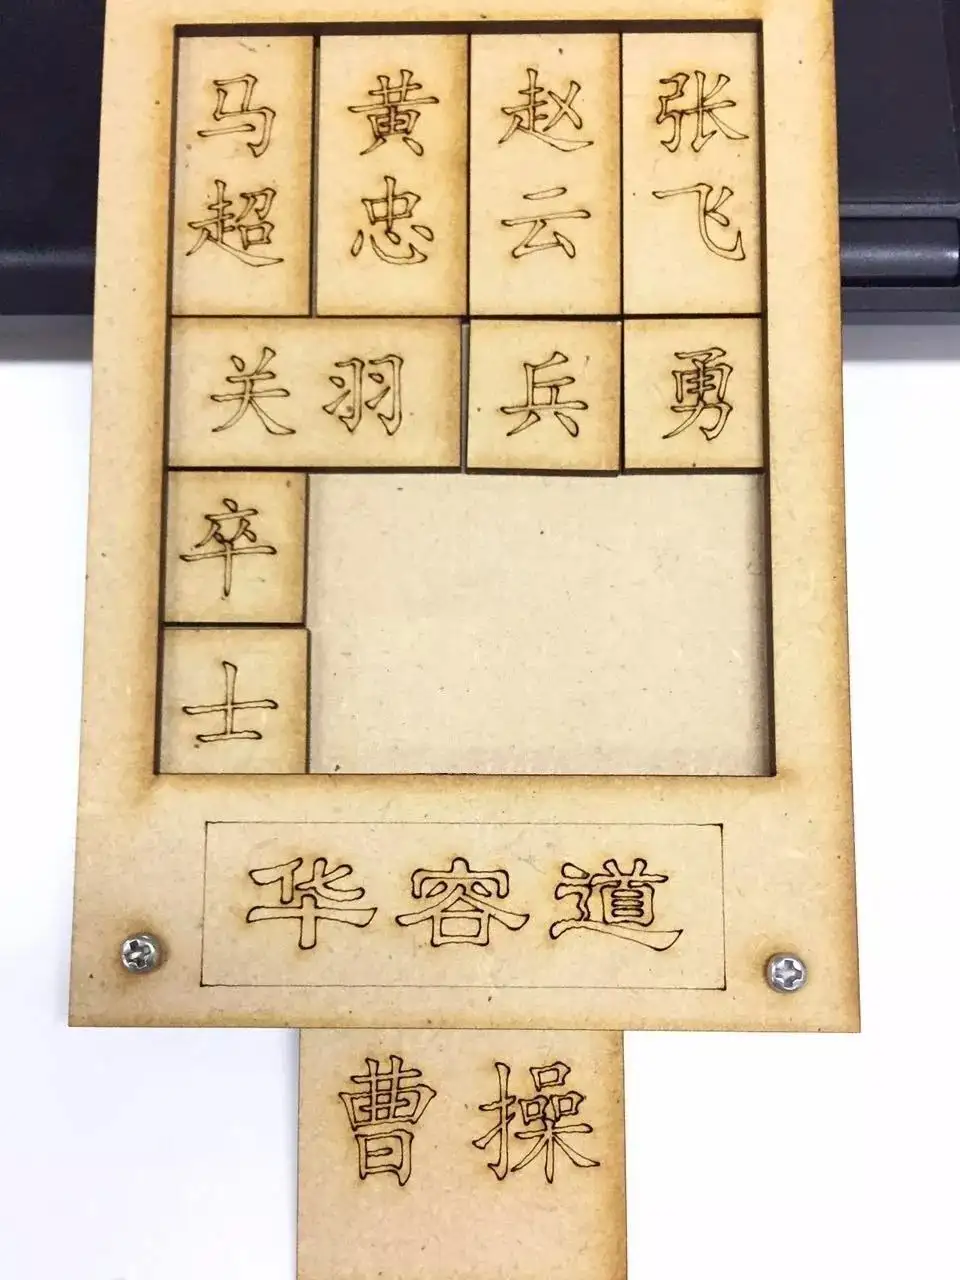 马超
黄忠
赵云
张飞
关羽
兵
勇
卒
士
华容道
曹操